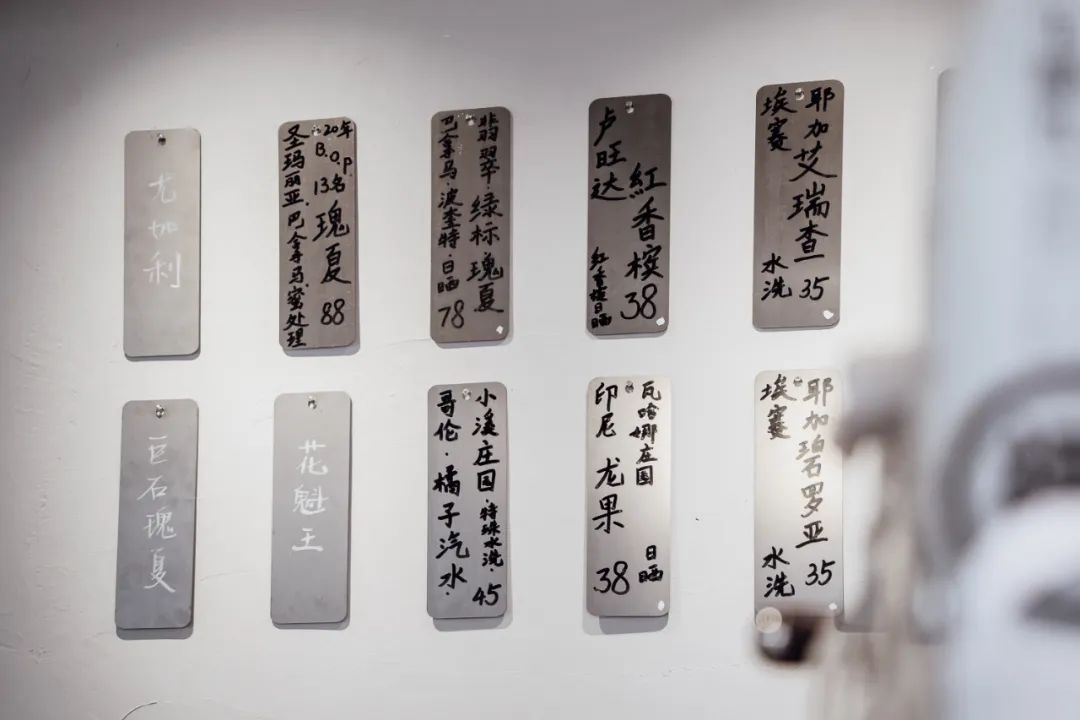 尤加利
20年
B.O.P.
13名
瑰夏
88
圣玛丽亚.巴拿马.蜜处理
翡翠·绿标瑰夏
巴拿马·波奎特·日晒
78
卢旺达
紅香槟
38
红香槟日晒
耶加艾瑞查
35
埃赛
水洗
巨石瑰夏
花魁王
小溪庄园·特殊水洗·
45
哥伦·橘子汽水·
瓦哈娜庄园
日晒
印尼 龙果
38
耶加碧石罗亚
35
埃赛
水洗